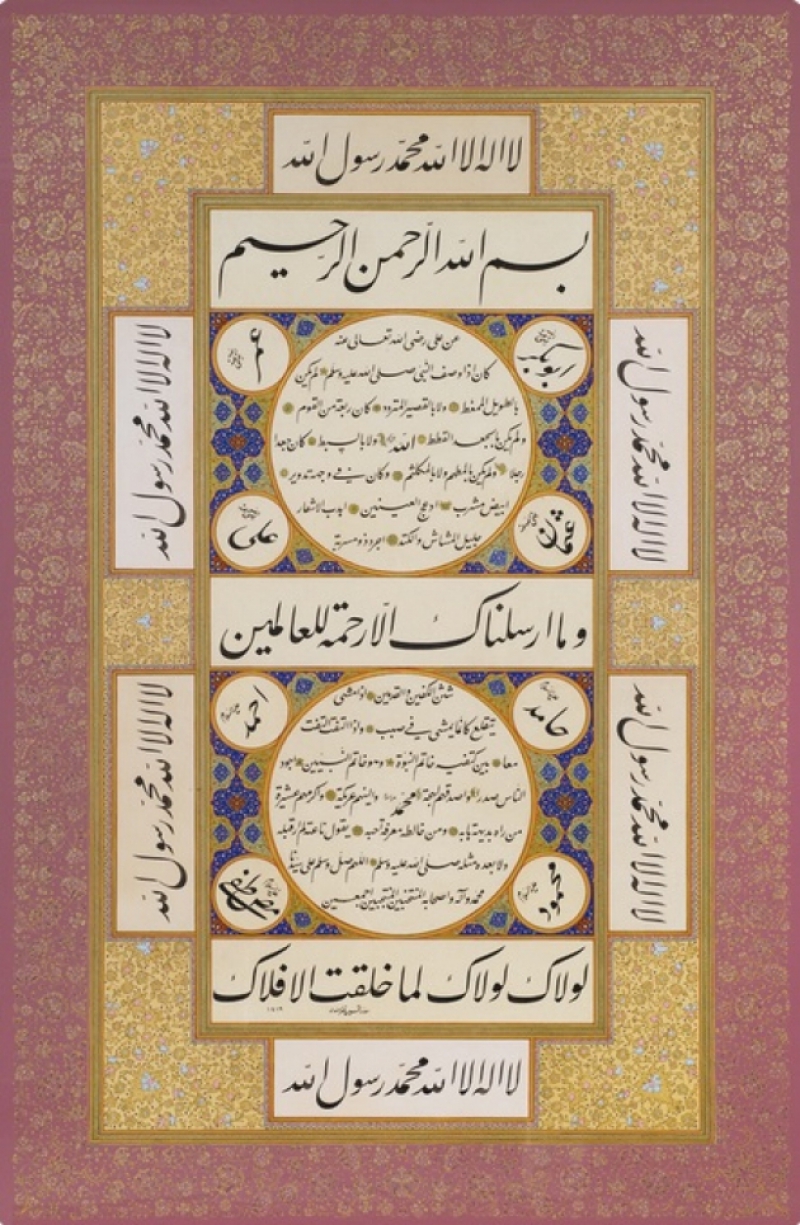 لا اله الا الله محمد رسول الله
بسم الله الرحمن الرحيم
لا اله الا الله محمد رسول الله
لا اله الا الله محمد رسول الله
ابوبكر
عمر
عن على رضى الله تعالى عنه
كان اذا وصف النبى صلى الله عليه وسلم لم يكن
بالطويل الممغط ولا بالقصير المتردد كان ربعة من القوم
ولم يكن بالجعد القطط ولا بالسبط كان جعدا
الله
رجلا ولم يكن بالمطهم ولا بالمكلثم وكان فى وجهه تدوير
ابيض مشرب ادعج العينين اهدب الاشفار
جليل المشاش والكتد اجرد ذو مسربة
عثمان
على
وما ارسلناك الا رحمة للعالمين
لا اله الا الله محمد رسول الله
لا اله الا الله محمد رسول الله
حامد
احمد
شثن الكفين والقدمين اذا مشى
يتقلع كانما يمشى فى صبب واذا التفت التفت
معا بين كتفيه خاتم النبوة وهو خاتم النبيين اجود
الناس صدرا واصدقهم لهجة والينهم عريكة واكرمهم عشيرة
محمد
من راه بديهة هابه ومن خالطه معرفة احبه يقول ناعته لم ار قبله
ولا بعده مثله صلى الله عليه وسلم اللهم صل وسلم على سيدنا
محمد وآله واصحابه المنتخبين المنتجبين اجمعين
محمود
مصطفى
لولاك لولاك لما خلقت الافلاك
١٤١٩
لا اله الا الله محمد رسول الله